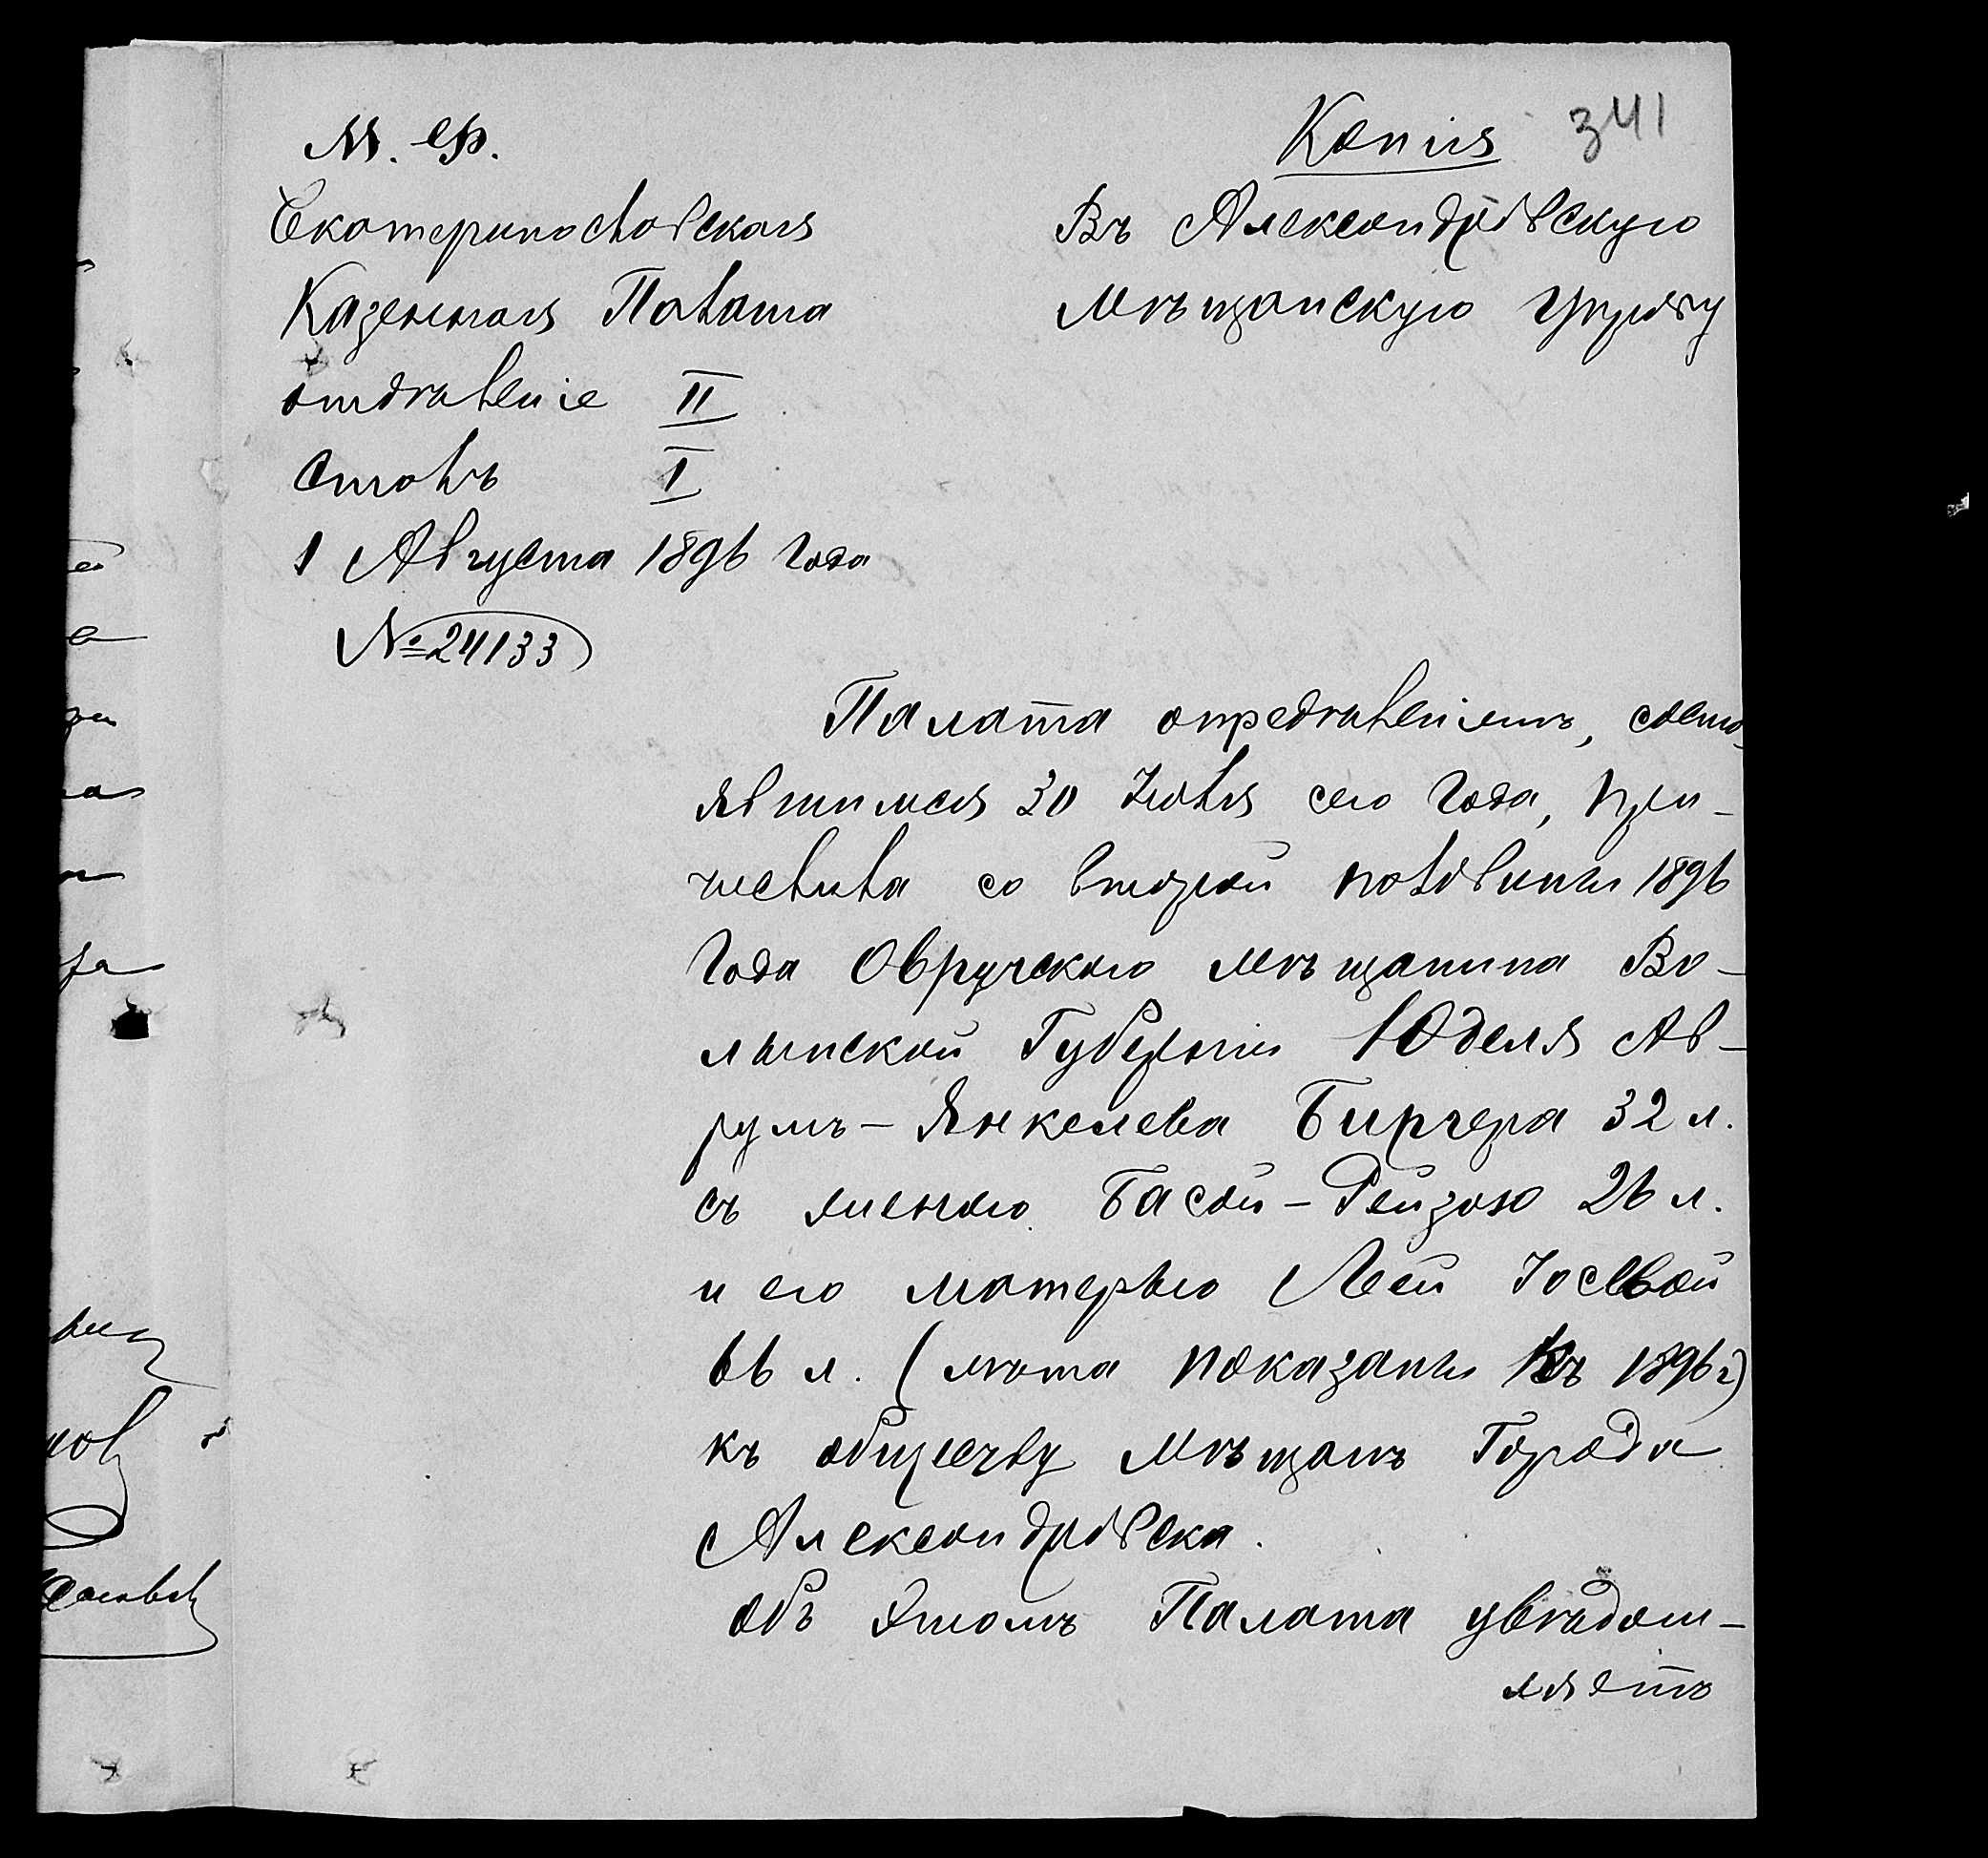 Копія 341
М. Ф.
Екатеринославская
Казенная Палата
отдѣленіе II
столъ I
1 Августа 1896 года
№ 24133
Въ Александровскую
Мѣщанскую Управу
Палата опредѣленіемъ, состо-
явшимся 30 Іюля сего года, при-
числила со второй половины 1896
года Овручскаго мѣщанина Во-
лынской Губерніи Юделя Ав-
румъ-Янкелева Бирчера 32 л.
съ женою Басой-Рейзою 26 л.
и его матерью Леей Іосевой
66 л. (лѣта показаны къ 1896 г)
къ обществу мѣщанъ города
Александровска.
объ этомъ Палата увѣдом-
ляетъ